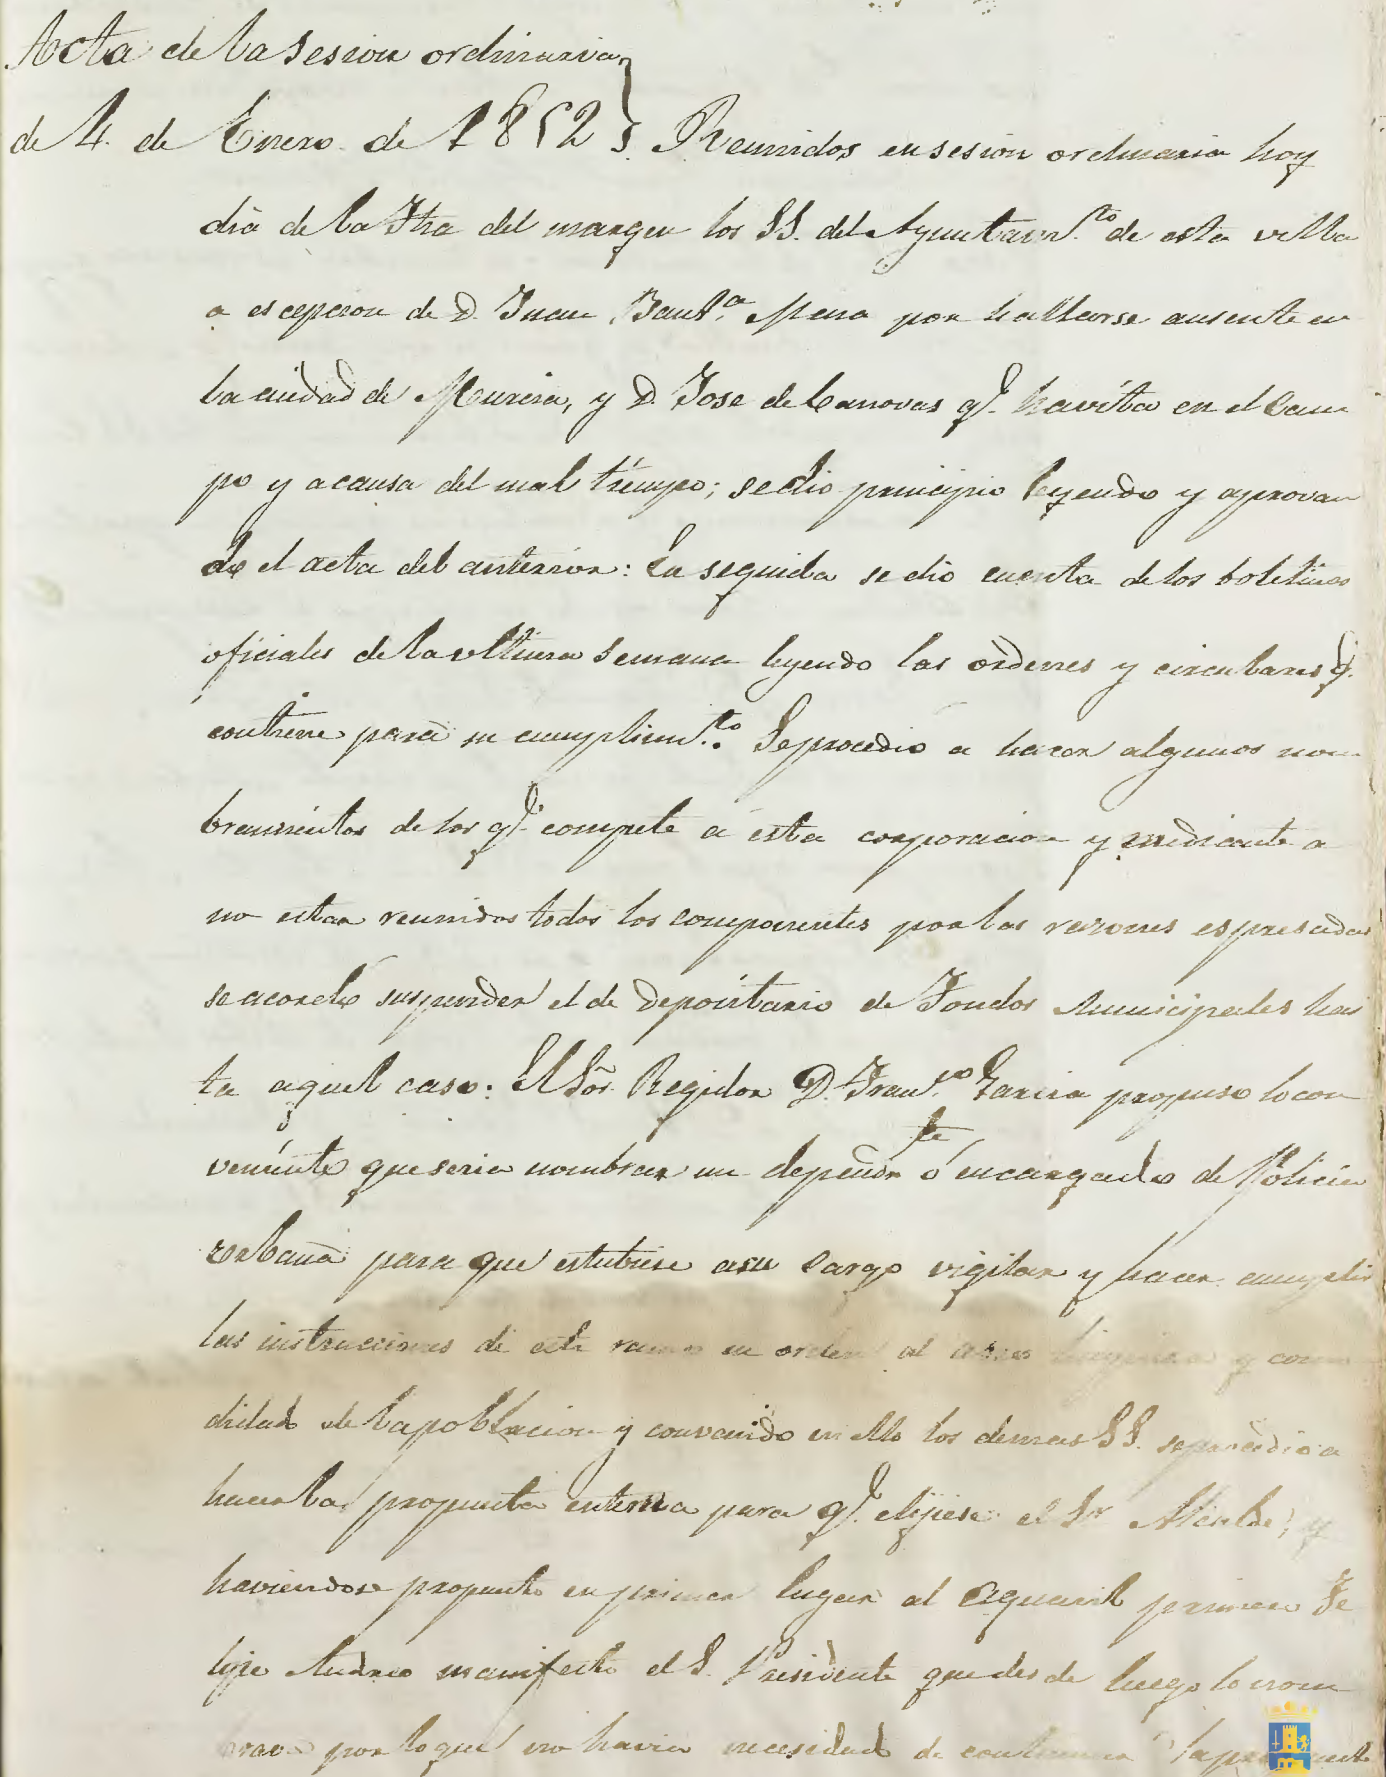 Acta de la Sesion ordinaria
de 4 de Enero de 1852 } Reunidos en sesion ordinaria hoy
dia de la fha del margen los SS. del Ayuntam.to de esta villa
a escepcion de D. Juan Baut.a Mena por hallarse ausente en
la ciudad de Murcia, y D. Jose de Canovas q.e havita en el Cam
po y a causa del mal tiempo; se dio principio leyendo y aprovan
do el acta del anterior: En seguida se dio cuenta de los boletines
oficiales de la ultima Semana leyendo las ordenes y circulares q.e
contiene para su cumplim.to. Se procedio a hacer algunos nom
bramientos de los q.e compete a esta corporacion y mediante a
no estar reunidos todos los componentes por las razones espresadas
se acordo suspender el de depositario de Fondos Municipales has
ta aquel caso: El Sor. Regidor D. Fran.co Garcia propuso lo con
veniente que seria nombrar un dependte o encargado de Policia
urbana para que estubiese a su cargo vigilar y hacer cumplir
las instrucciones de este ramo en orden al aseo y como
didad de la poblacion y convenido en ello los demas SS. se procedio a
hacer la propuesta en terna para q.e elijiese el Sr Alcalde, y
haviendose propuesto en primer lugar al Alguacil primero Fe
lipe Andreo manifesto el S. Presidente que desde luego lo nom
brava por lo que no havia necesidad de continuar la